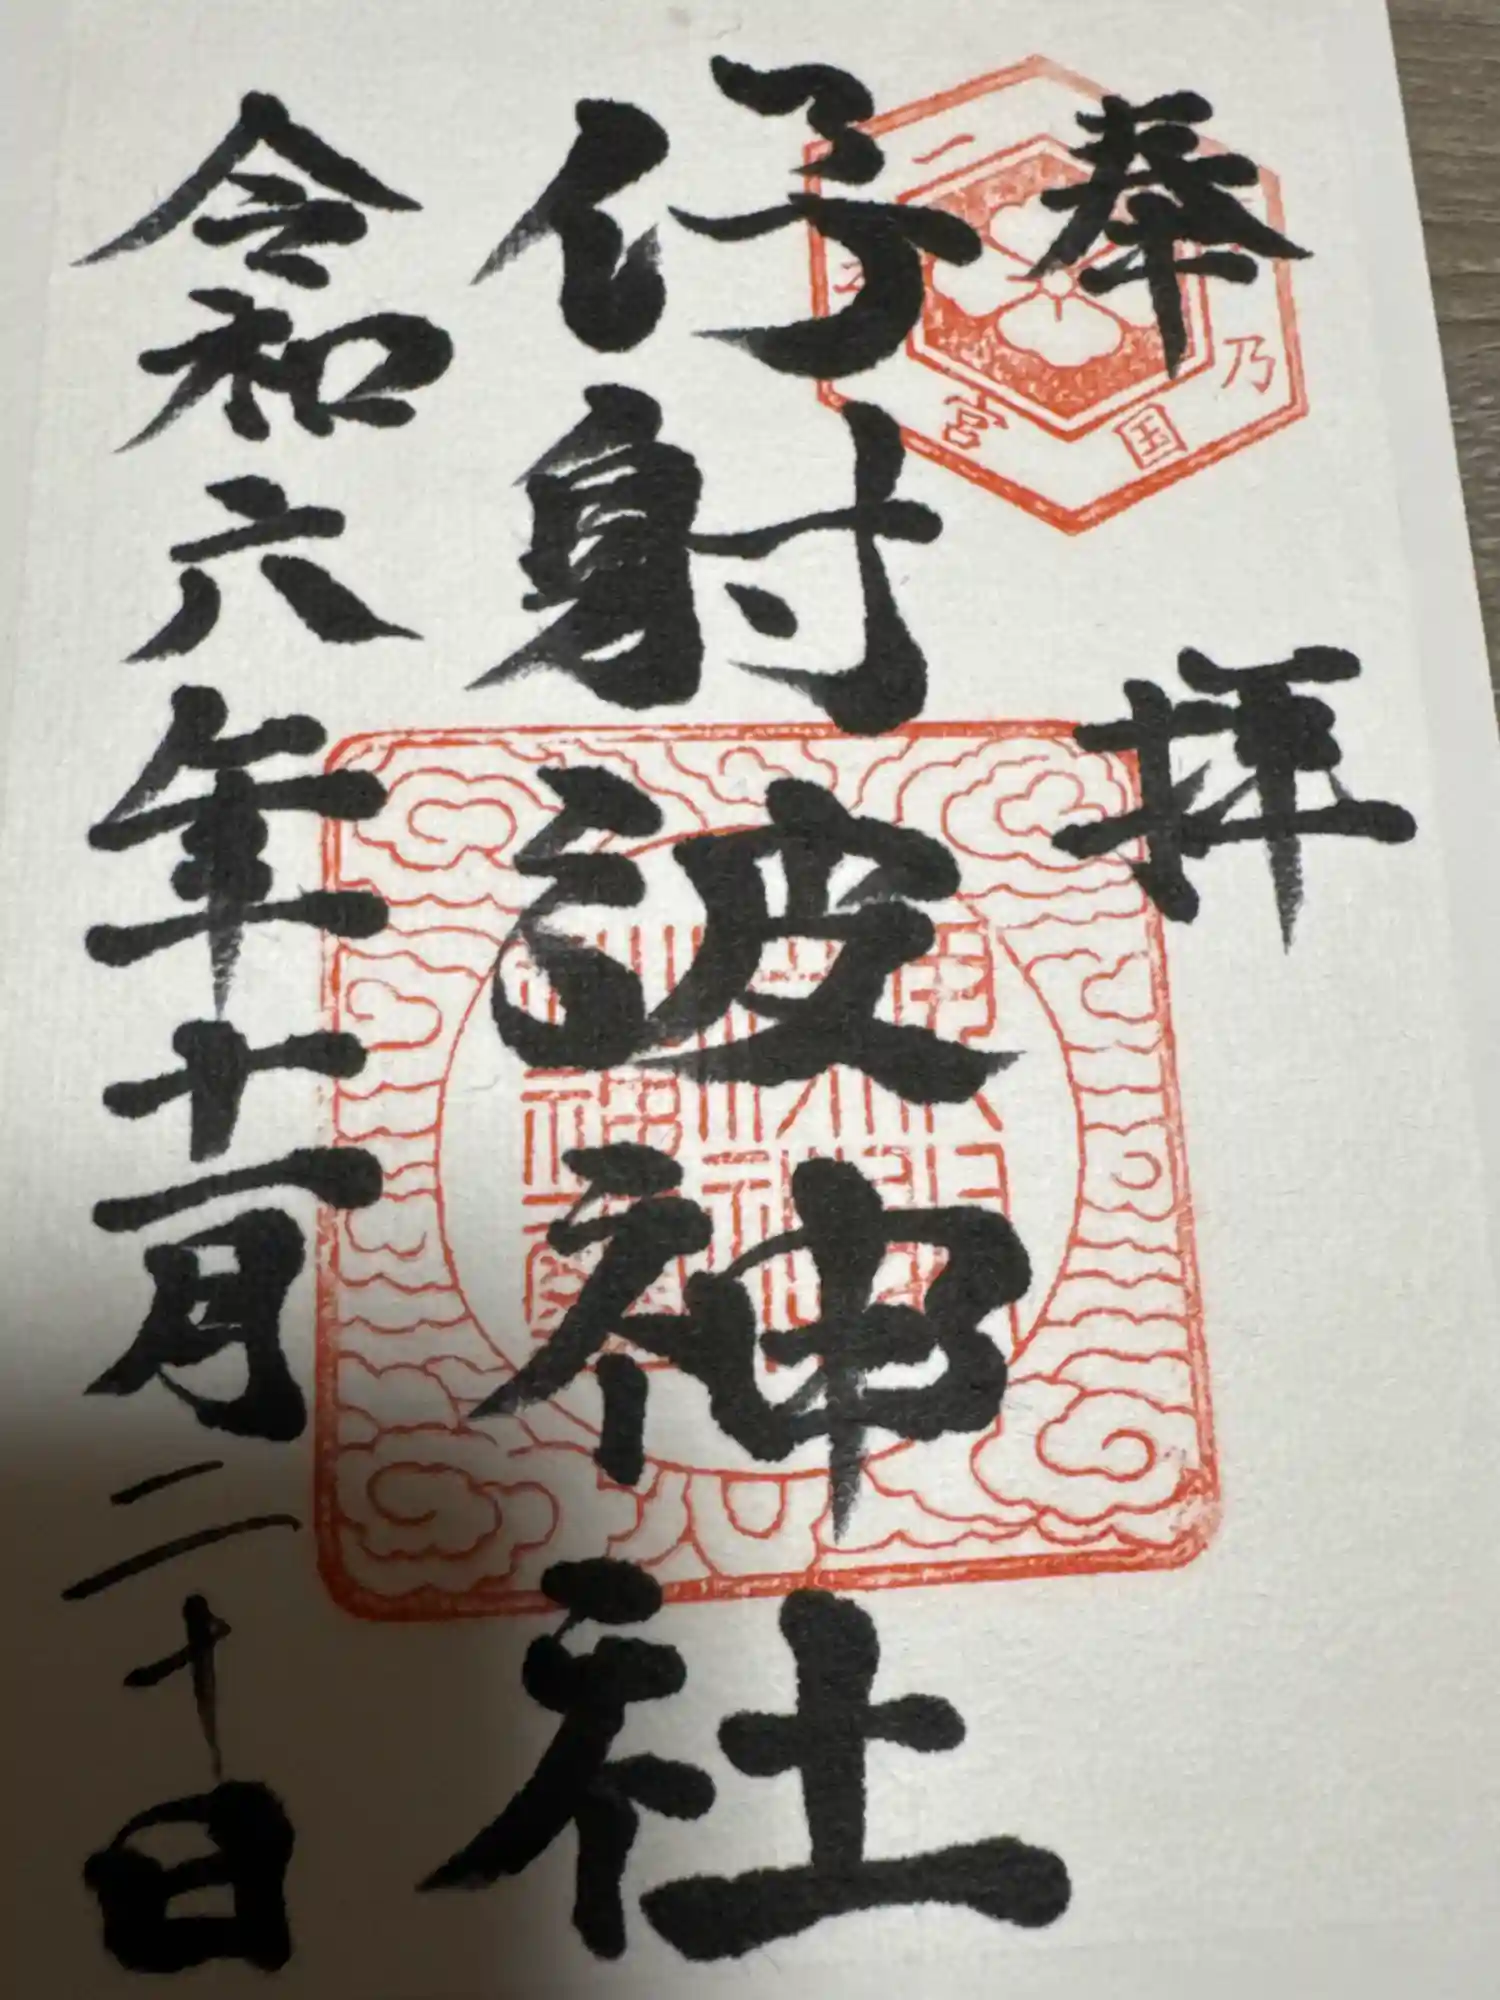 奉拝
乃国
一之宮
伊射波神社
令和六年十一月二十日